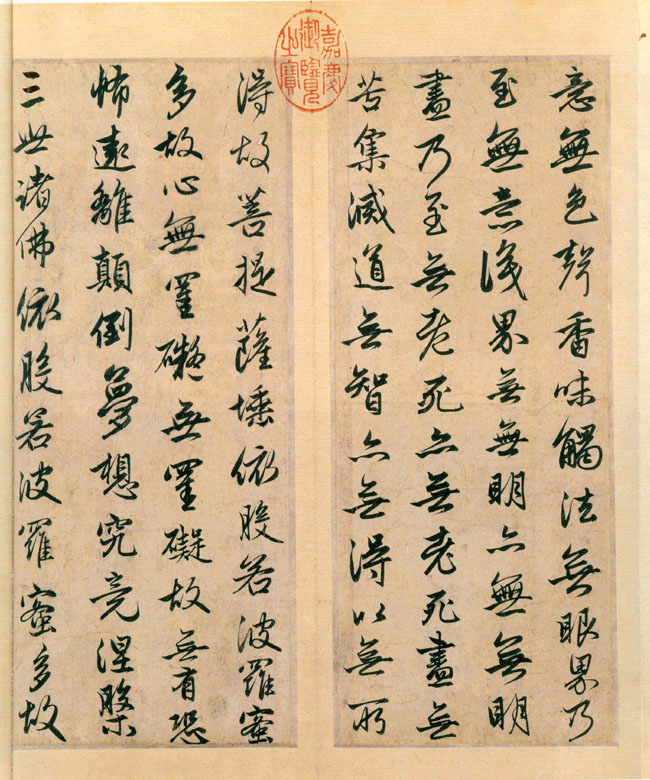 意無色聲香味觸法無眼界乃
至無意識界無無明亦無無明
盡乃至無老死亦無老死盡無
苦集滅道無智亦無得以無所
得故菩提薩埵依般若波羅蜜
多故心無罣礙無罣礙故無有恐
怖遠離顛倒夢想究竟涅槃
三世諸佛依般若波羅蜜多故
嘉慶御覽之寶